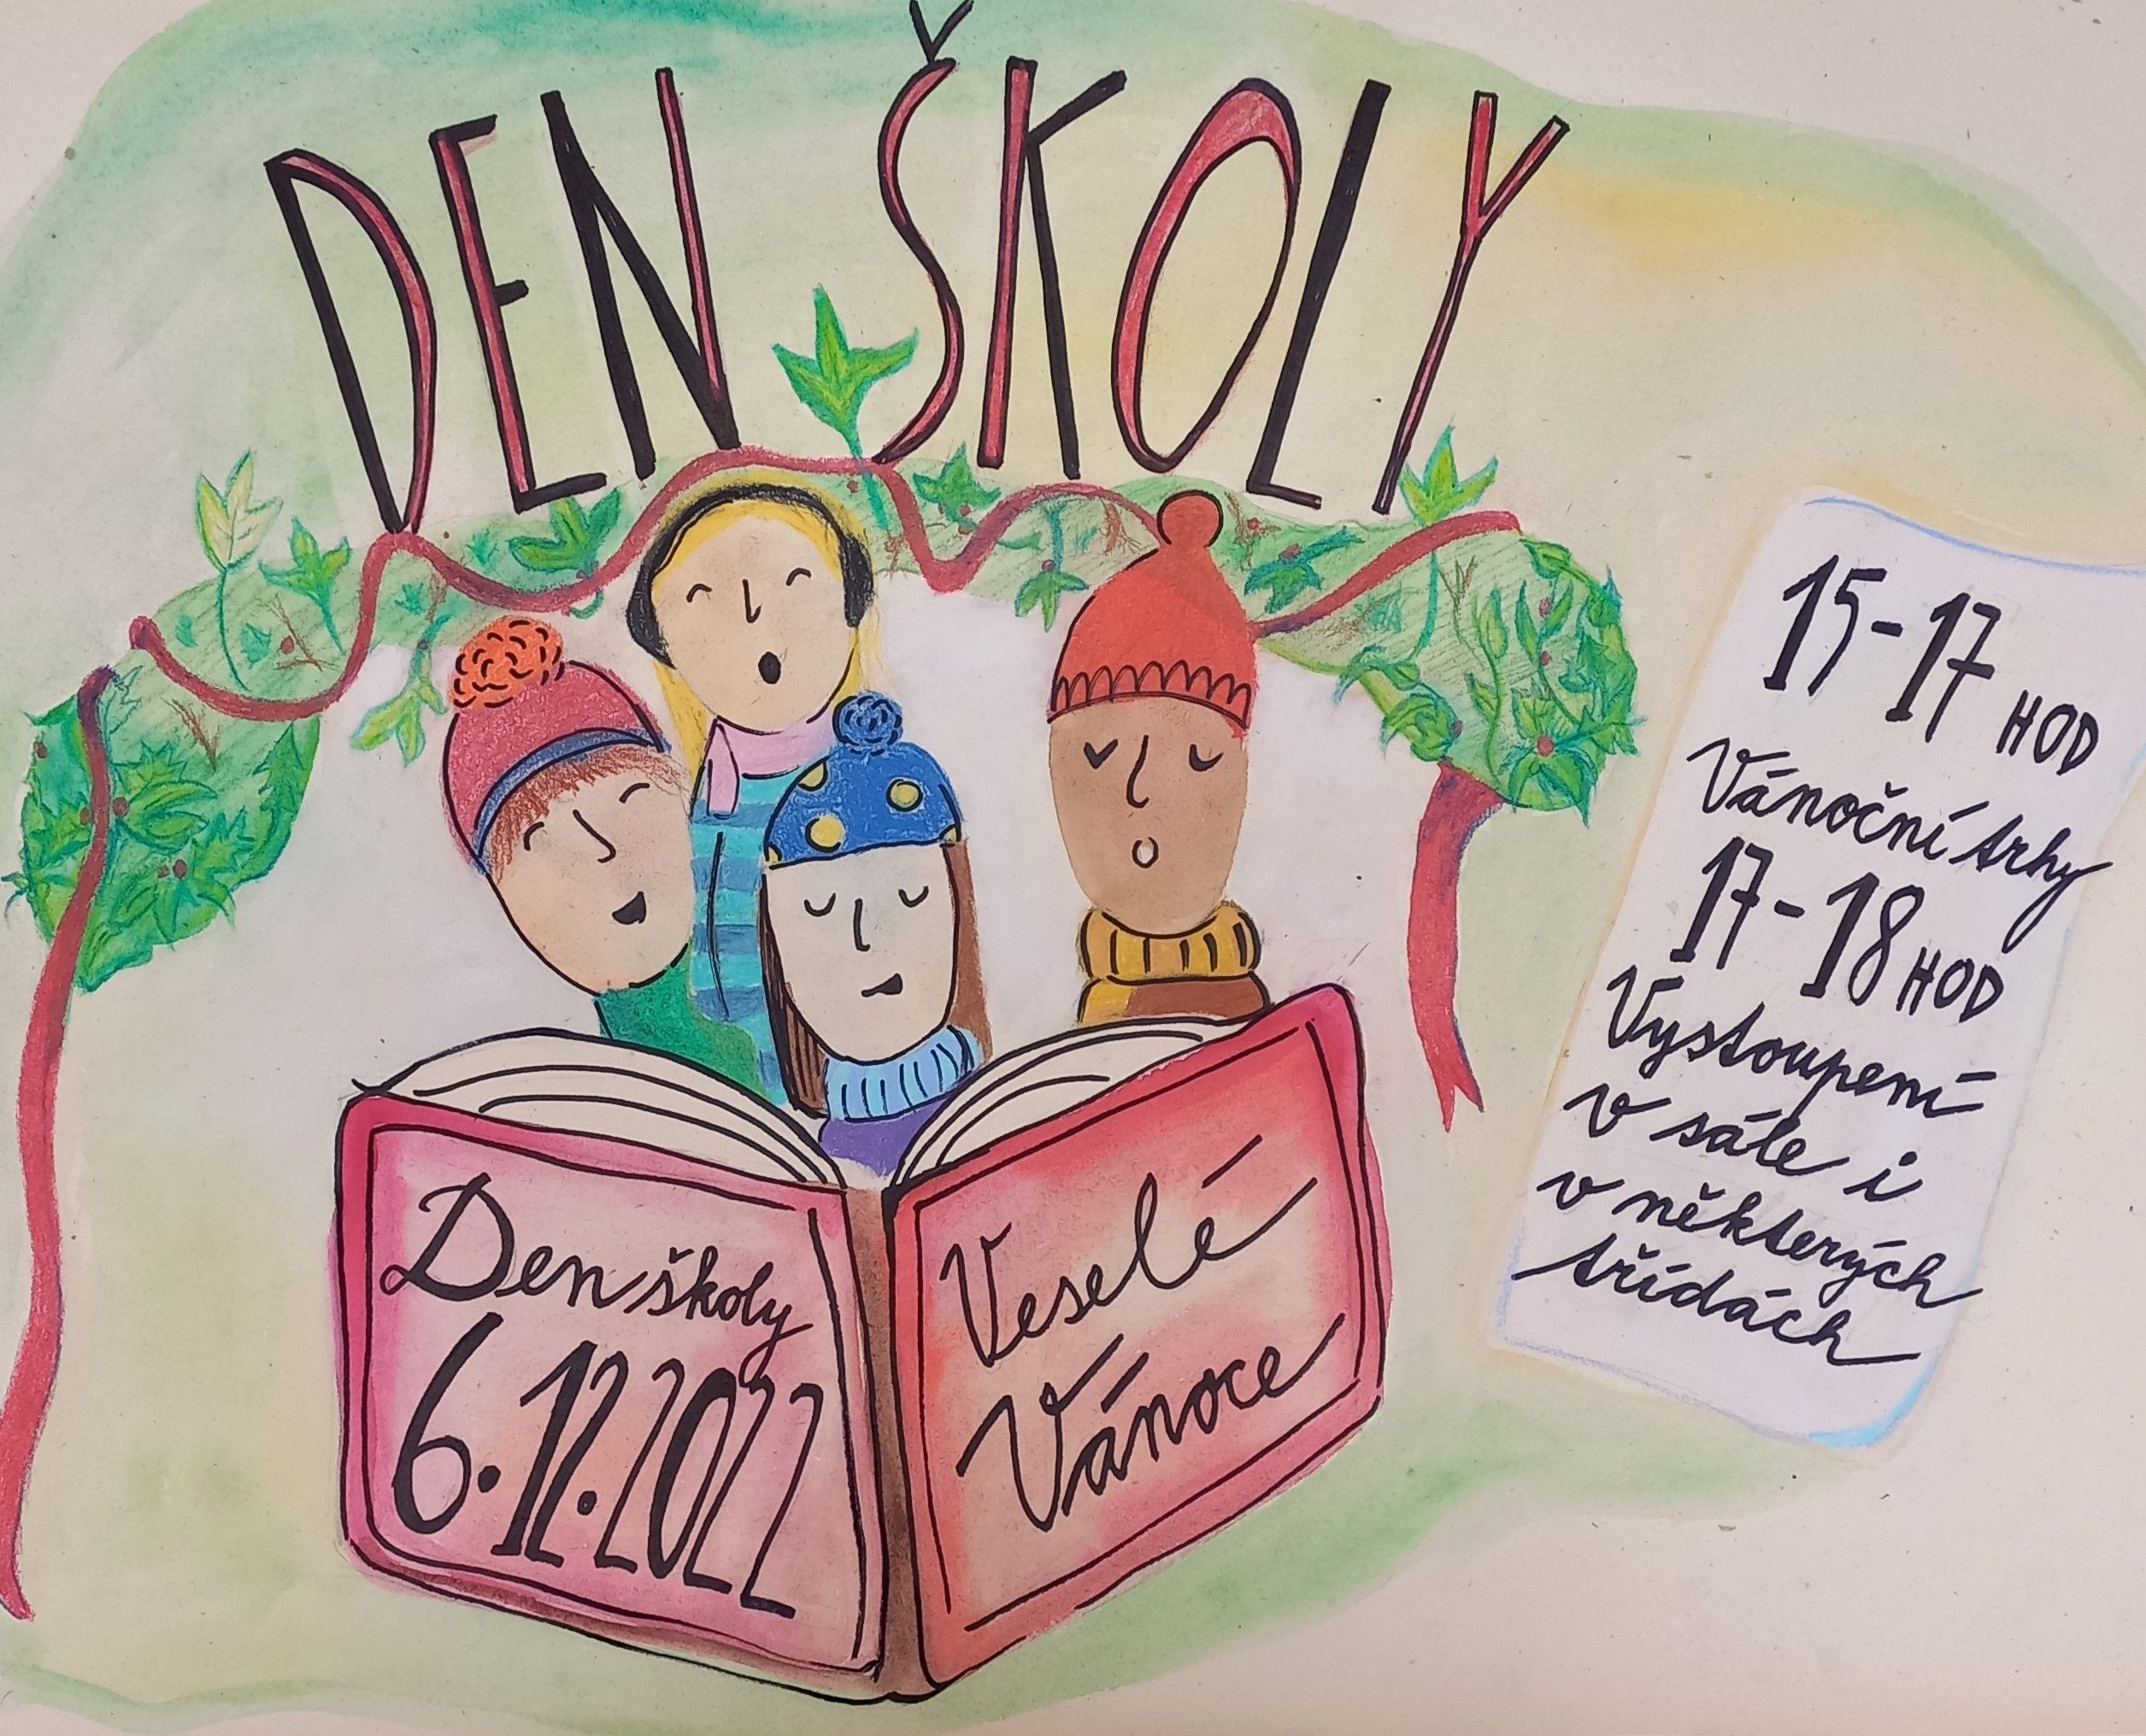 DEN ŠKOLY
Den školy
6.12.2022
Veselé
Vánoce
15-17 HOD
Vánoční trhy
17-18 HOD
Vystoupení
v sále i
v některých
třídách